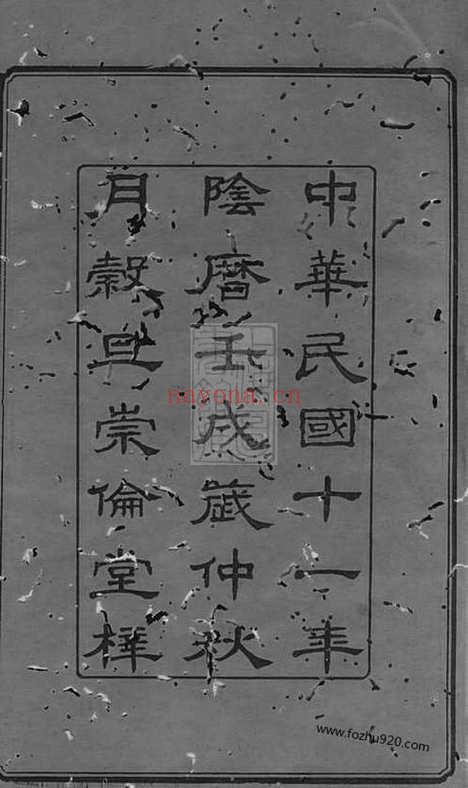 中華民國十一年
陰曆壬戌歲仲秋
月穀旦崇倫堂梓
nayona.cn
www.fozhu920.com